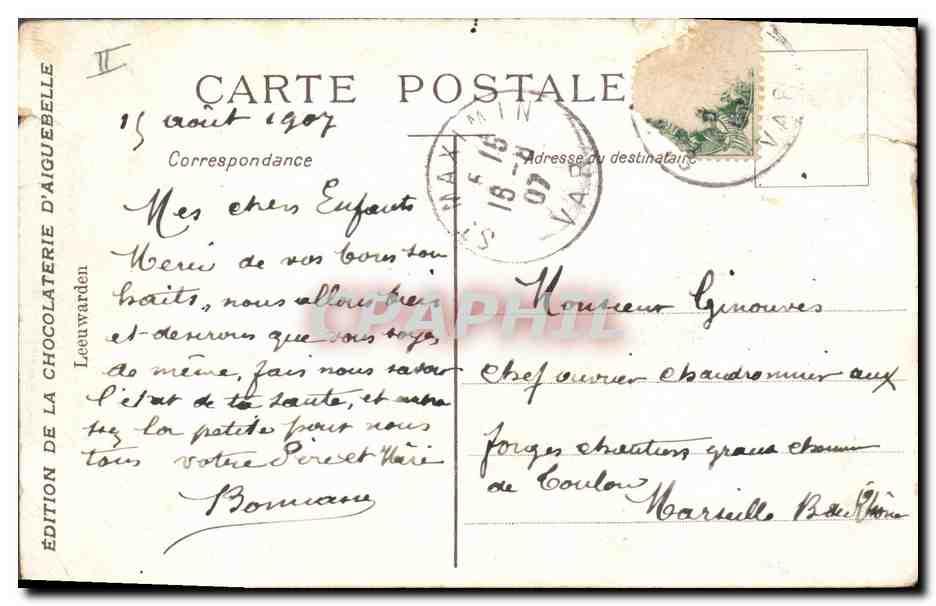 II
CARTE POSTALE
15 août 1907
Correspondance
Adresse du destinataire
ST MAXIMIN
5 - 15
16 - 8
07
VAR
VAR
Mes chers Enfants
Merci de vos bons sou
haits, nous allons bien
et désirons que vous soyez
de même, fais nous savoir
l'état de ta santé, et embra
ssez la petite pour nous
tous votre Père et Mère
Monsieur Ginouvès
chef ouvrier chaudronnier aux
forges chantiers grand chemin
de Toulon
Marseille B du Rhône
ÉDITION DE LA CHOCOLATERIE D'AIGUEBELLE
Leeuwarden
CPAPHIL